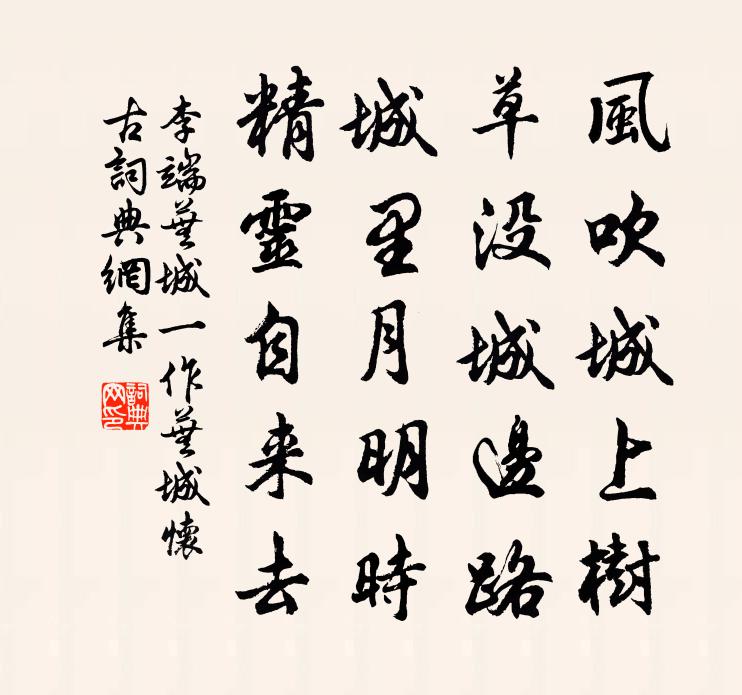 風吹城上樹
草没城邊路
城里月明時
精靈自来去
李端蕪城一作蕪城懷
古詞典網集
詞典
网印